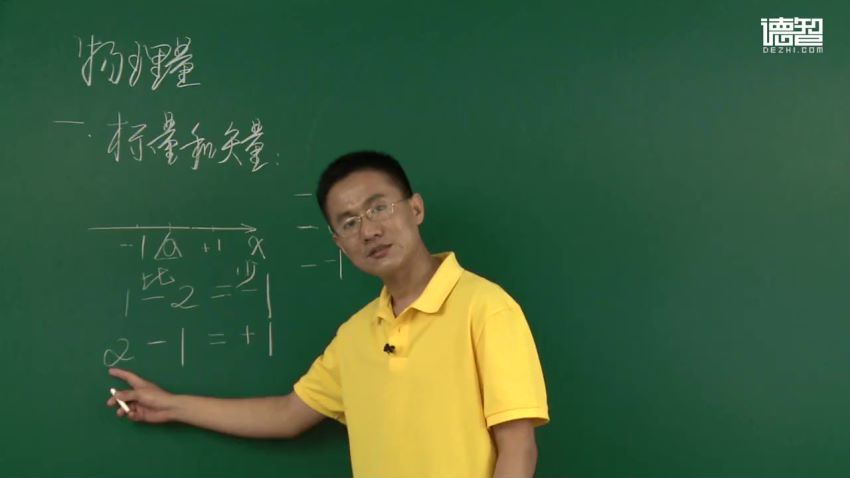 德智
DEZHI.COM
物理量
一. 标量和矢量:
-1 0 +1 x
比 少
1 - 2 = - 1
2 - 1 = + 1
-1